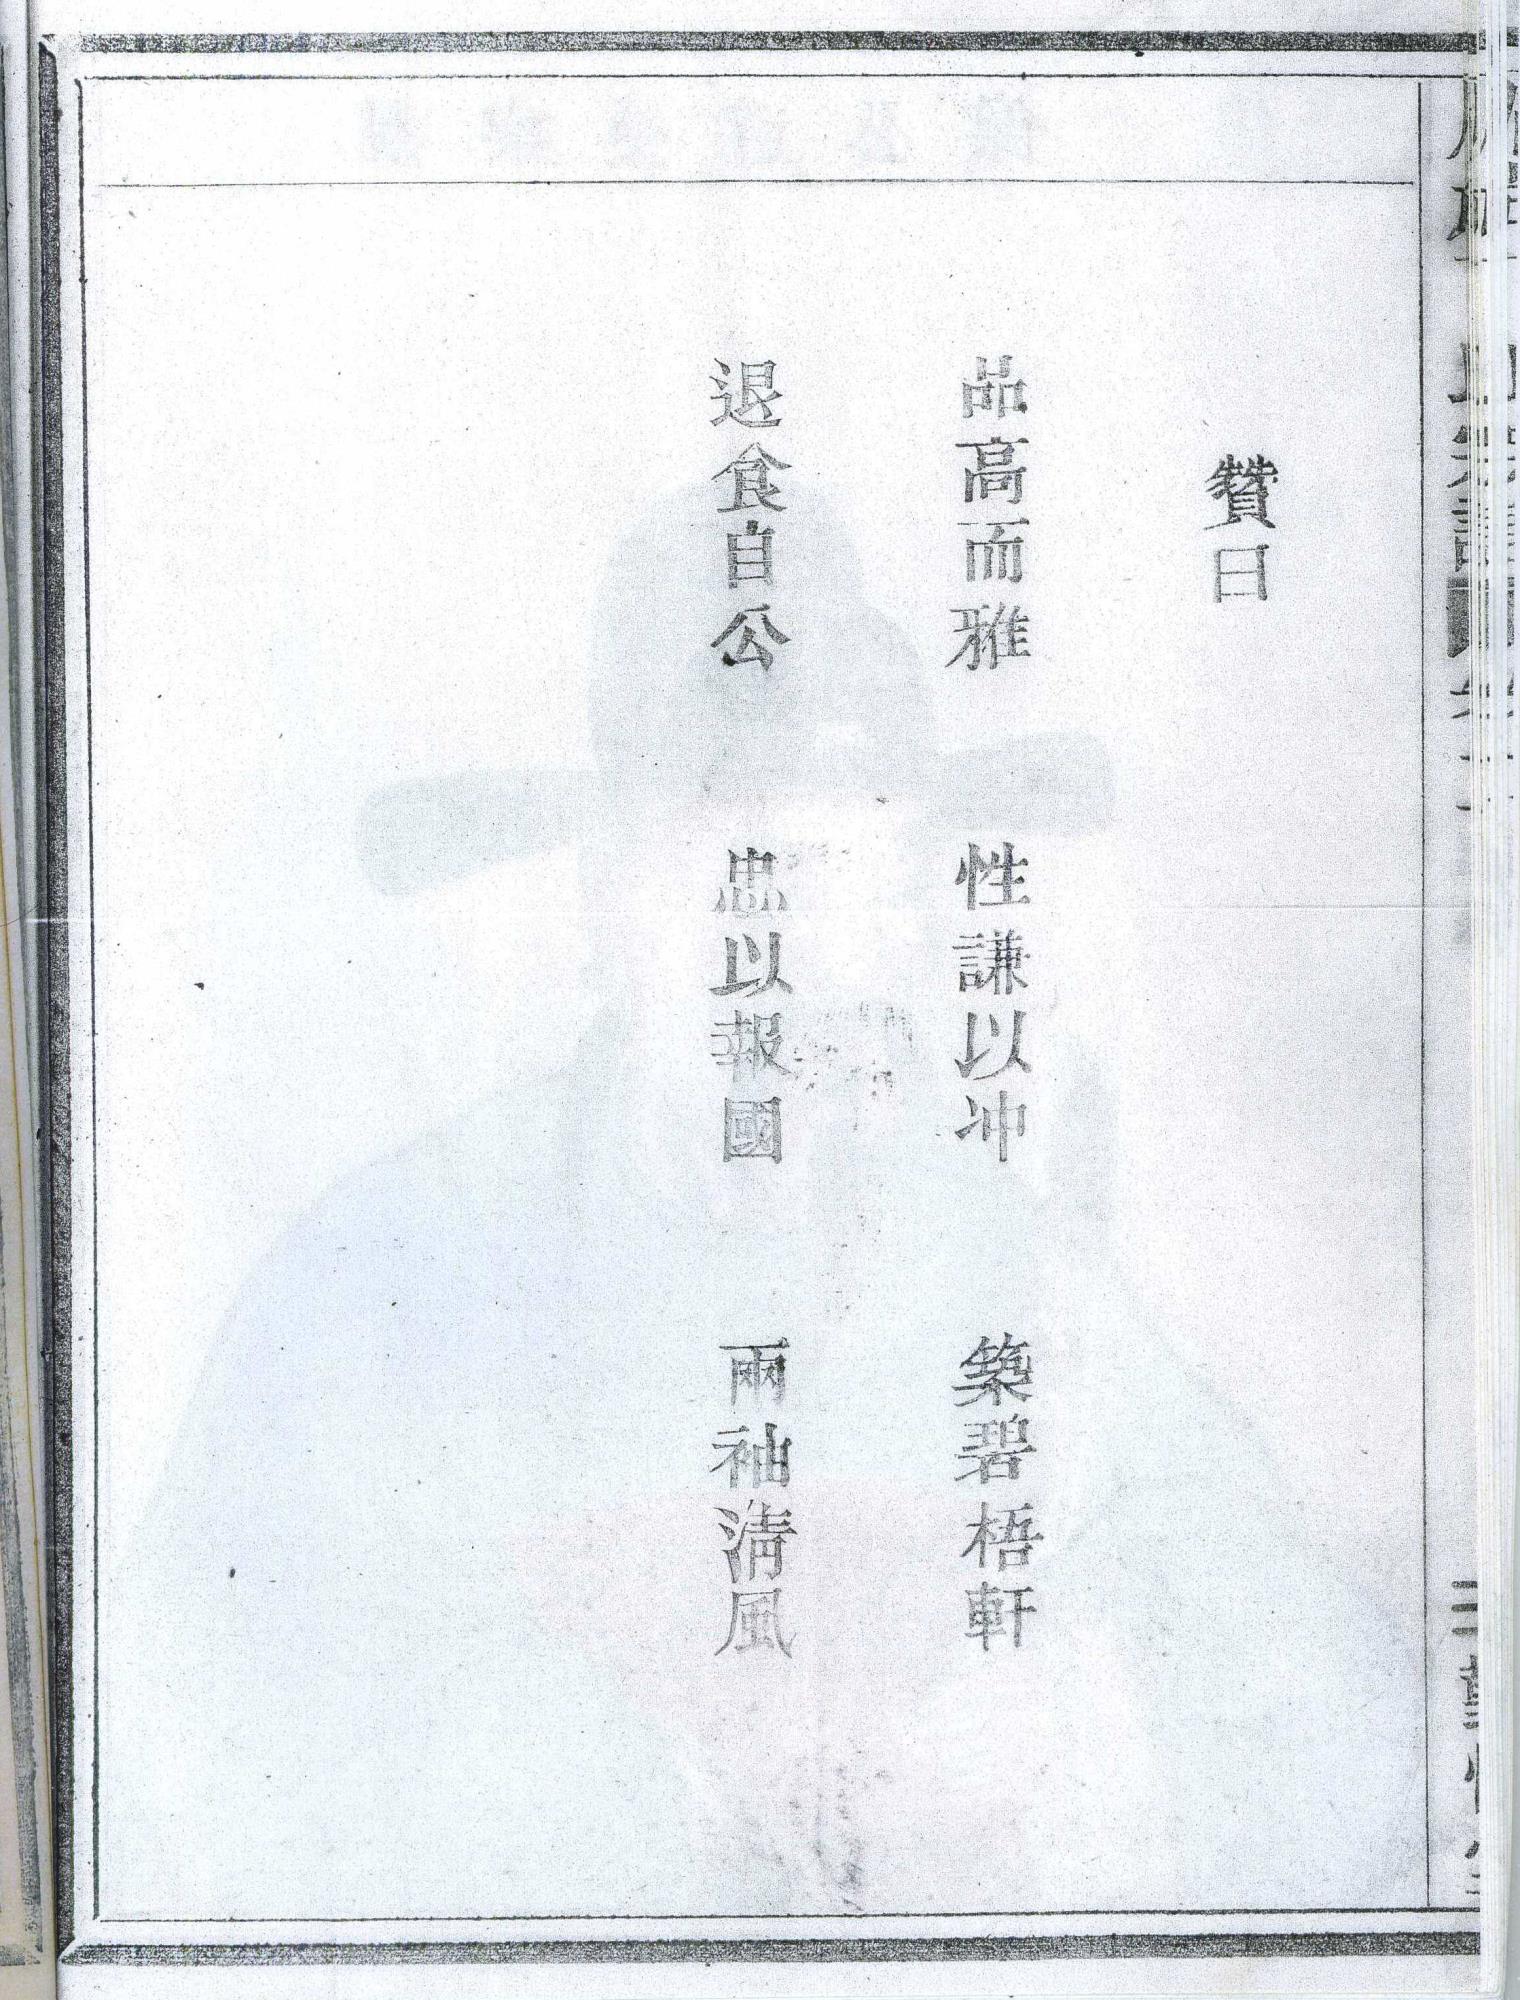 贊曰
品高而雅 性謙以冲 築碧梧軒
退食自公 忠以報國 兩袖淸風